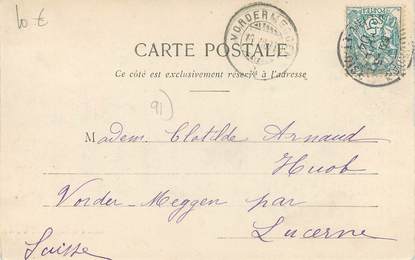 10 €
VORDERMEGGEN
CARTE POSTALE
Ce côté est exclusivement réservé à l'adresse
91)
Madem. Clotilde Arnaud
Huob
Vorder-Meggen par
Lucerne
Suisse